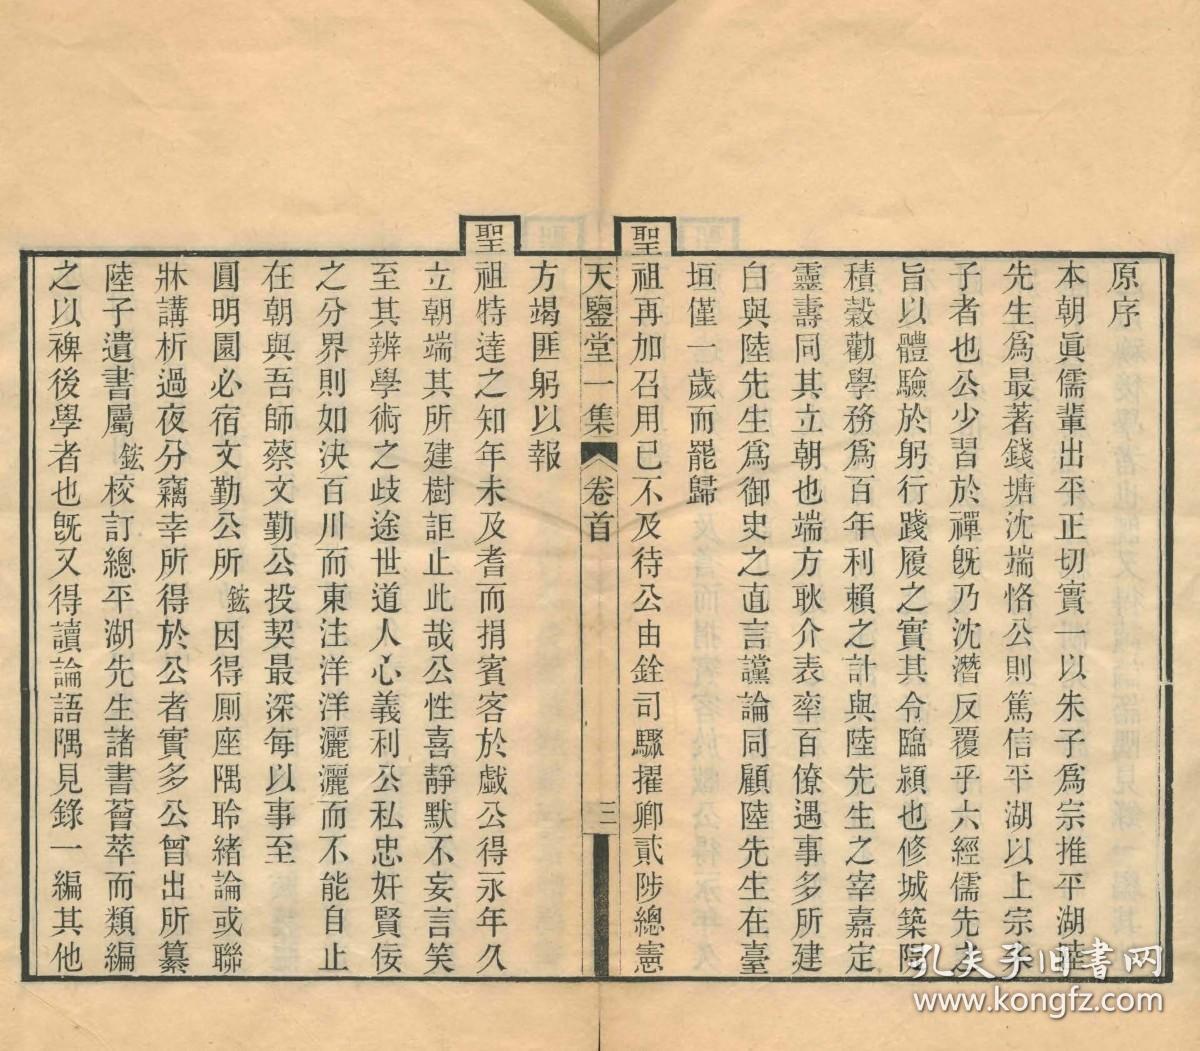 原序
本朝眞儒輩出平正切實一以朱子爲宗推平湖陸
先生爲最著錢塘沈端恪公則篤信平湖以上宗朱
子者也公少習於禪旣乃沈潛反覆乎六經儒先之
旨以體驗於躬行踐履之實其令臨潁也修城築隄
積穀勸學務爲百年利賴之計與陸先生之宰嘉定
靈壽同其立朝也端方耿介表率百僚遇事多所建
白與陸先生爲御史之直言讜論同顧陸先生在臺
垣僅一歲而罷歸
聖祖再加召用已不及待公由銓司驟擢卿貳陟總憲
天鑒堂一集 卷首 三
方竭匪躬以報
聖祖特達之知年未及耆而捐賓客於戲公得永年久
立朝端其所建樹詎止此哉公性喜靜默不妄言笑
至其辨學術之歧途世道人心義利公私忠奸賢佞
之分界則如決百川而東注洋洋灑灑而不能自止
在朝與吾師蔡文勤公投契最深每以事至
圓明園必宿文勤公所鋐因得厠座隅聆緒論或聯
牀講析過夜分竊幸所得於公者實多公曾出所纂
陸子遺書屬鋐校訂總平湖先生諸書薈萃而類編
之以裨後學者也旣又得讀論語隅見錄一編其他
孔夫子旧书网
www.kongfz.com